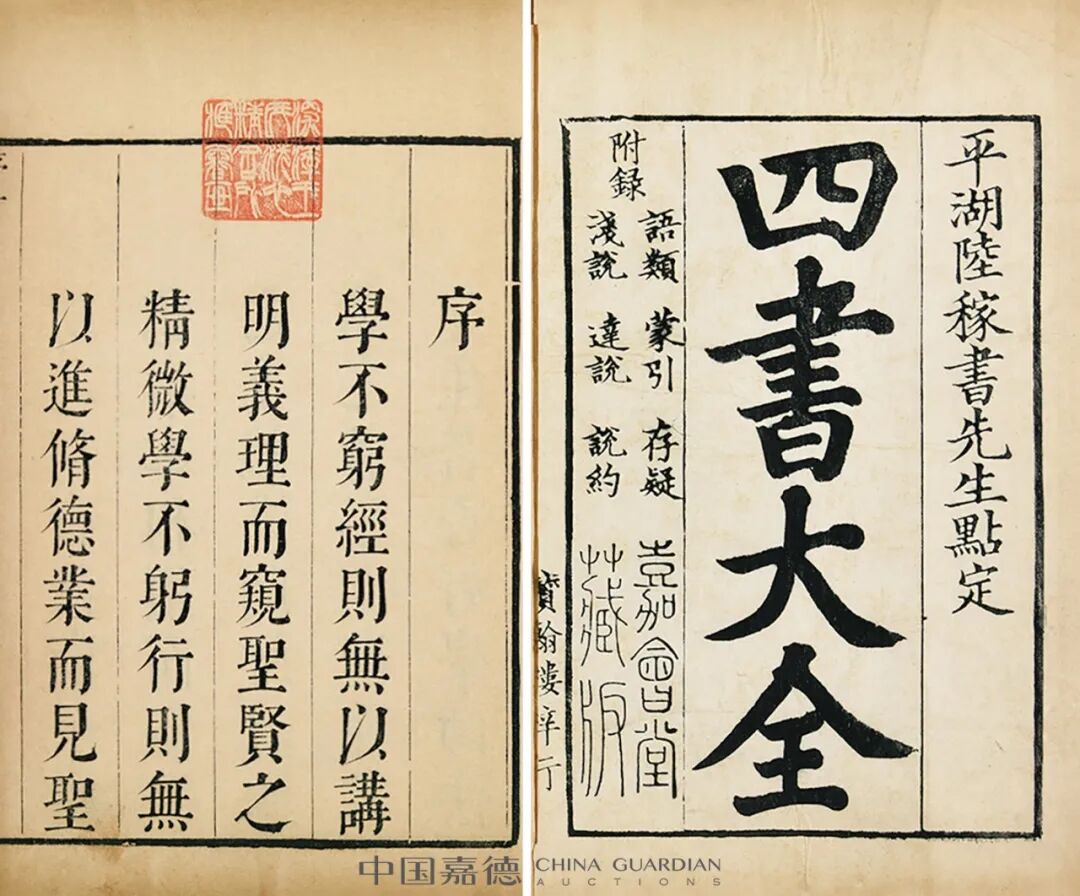 平湖陸稼書先生點定
四書大全
附錄
語類 蒙引 存疑
淺說 達說 說約
嘉會堂
藏板
寶翰樓
序
學不窮經則無以講
明義理而窺聖賢之
精微學不躬行則無
以進脩德業而見聖
中国嘉德 CHINA GUARDIAN
AUCTIONS